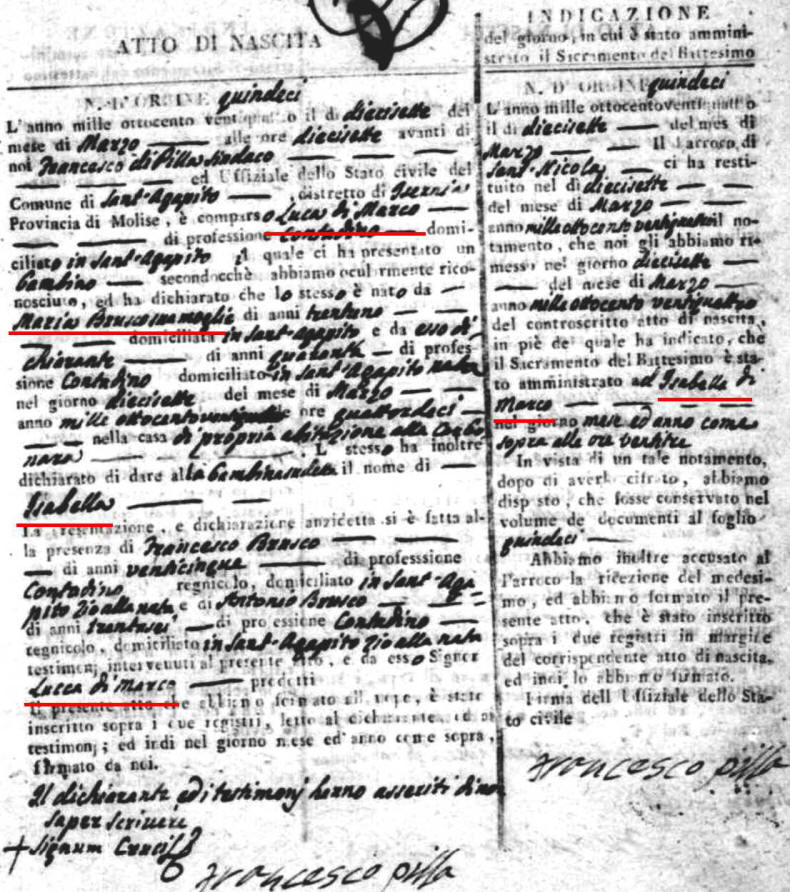 ATTO DI NASCITA
N. D'ORDINE quindeci
L'anno mille ottocento ventiquattro il dì diecisette del
mese di Marzo alle ore diecisette avanti di
noi Francesco di Pilla Sindaco
ed Uffiziale dello Stato civile del
Comune di Sant-Agapito distretto di Isernia
Provincia di Molise, è comparso Luca di Marco
di professione Contadino domi-
ciliato in Sant-Agapito il quale ci ha presentato un
bambino secondocchè abbiamo ocularmente rico-
nosciuto, ed ha dichiarato che lo stesso è nato da
Maria Brusco sua moglie di anni trentuno
domiciliata in Sant-Agapito e da esso di
chiarante di anni quaranta di profes-
sione Contadino domiciliato in Sant-Agapito nata
nel giorno diecisette del mese di Marzo
anno mille ottocentoventiquattro ore quattordeci
nella casa di propria abitazione alla
L' stesso ha inoltre
dichiarato di dare alla bambina sudetta il nome di
Isabella
La presentazione, e dichiarazione anzicetta si è fatta al-
la presenza di Francesco Brusco
di anni venticinque di professsione
Contadino regnicolo, domiciliato in Sant-Aga
pito Zio alla nata e di Antonio Brusco
di anni trentasei di professione Contadino
regnicolo, domiciliato in Sant-Agapito Zio alla nata
testimonj intervenuti al presente atto, e da esso Signor
Lucca di Marco predetti
Il presente atto che abbiamo formato all'uopo, è stato
inscritto sopra i due registri, letto al dichiarante, ed ai
testimonj; ed indi nel giorno mese ed'anno come sopra,
firmato da noi.
Il dichiarante ed i testimonj hanno asseriti di non
saper scrivere
+ Signum Crucis
Francesco pilla
INDICAZIONE
del giorno, in cui è stato ammini-
strato il Sacramento del Battesimo
N. D'ORDINE quindeci
L'anno mille ottocentoventiquattro
il dì diecisette del mes di
Marzo Il Parroco di
Sant Nicola ci ha resti-
tuito nel dì diecisette
del mese di Marzo
anno mille ottocento ventiquattro il no-
tamento, che noi gli abbiamo ri-
messo nel giorno diecisette
del mese di Marzo
anno mille ottocento ventiquattro
del controscritto atto di nascita,
in piè de' quale ha indicato, che
il Sacramento del Battesimo è sta-
to amministrato ad Isabella di
Marco
nel giorno mese ed anno come
sopra alle ore ventitre
In vista di un tale notamento,
dopo di averlo cifrato, abbiamo
disposto, che fosse conservato nel
volume de documenti al foglio
quindeci
Abbiamo inoltre accusato al
Parroco la ricezione del medesi-
mo, ed abbiamo formato il pre-
sente atto, che è stato inscritto
sopra i due registri in margine
del corrispondente atto di nascita,
ed indi lo abbiamo firmato.
Firma dell Uffiziale dello Sta-
to civile
Francesco pilla